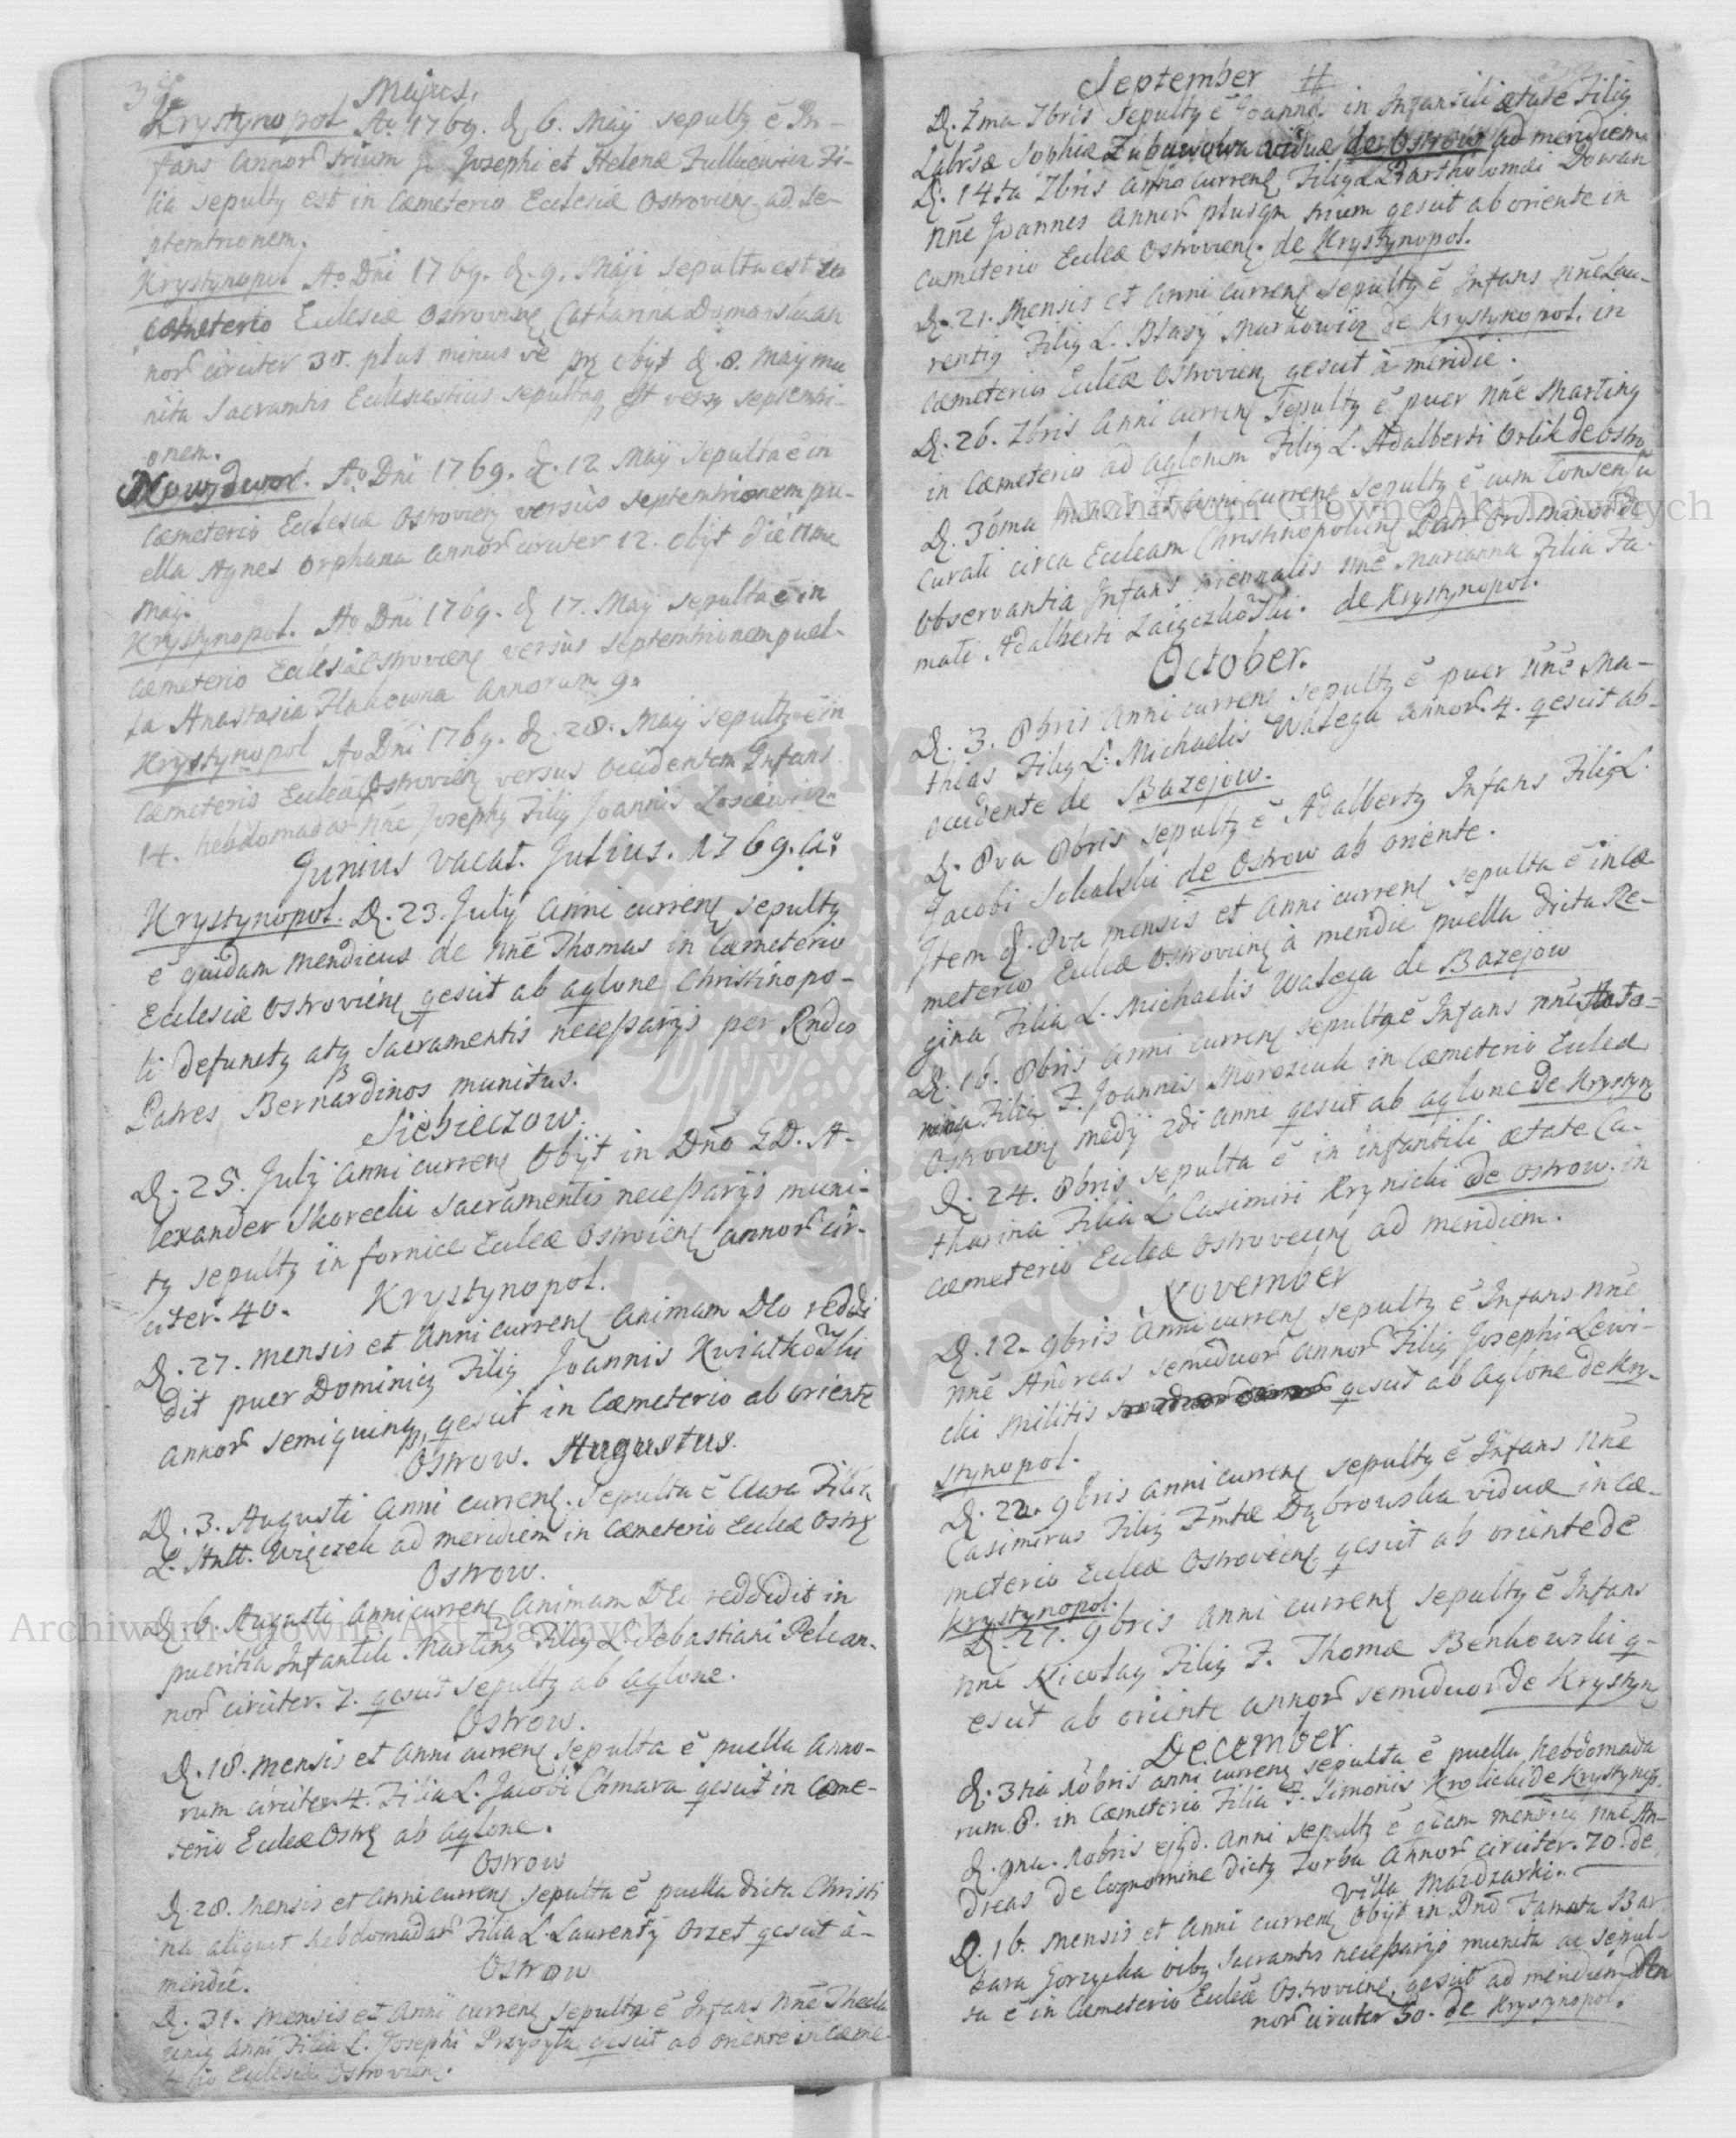 Majus.
Krystynopol Ao 1769. d. 6. Maij sepultq ē In-
fans annorr trium Josephi et Helenæ Fi-
lia sepultq est in Cæmeterio Ecclesiæ Ostroviens ad se-
ptemtrionem.
Krystynopol Ao Dni 1769. d. 9. Maji sepulta est
Cæmeterio Ecclesiæ Ostroviens Catharina Dumanska an
norr circiter 30. plus minus ve obijt d. 8. Maij mu
nita Sacramtis Ecclesiasticis sepultaq est versq septemtri-
onem.
Nowydwor. Ao Dni 1769. d. 12 Maij sepulta ē in
Cæmeterio Ecclesiæ Ostroviens versùs septemtrionem pu-
ella Agnes Orphana annorr circiter 12. obijt die 11ma
Maij.
Krystynopol. Ao Dni 1769. d 17. Maij sepulta ē in
Cæmeterio Ecclesiæ Ostroviens versùs septemtrionem puel-
la Anastasia Hakowna Annorum 9.
Krystynopol Ao Dni 1769. d. 28. Maij sepultq ē in
Cæmeterio Eccleæ Ostroviens versus occidentem Infans
14. hebdomadar nñe Josephq Filiq Joannis
Junius vacat. Julius. 1769. a:
Krystynopol. D. 23. Julij anni currens sepultq
ē quidam mendicus de nñe Thomas in Cæmeterio
Ecclesiæ Ostroviens qescit ab aqlone Christinopo-
li defunctq atq Sacramentis necessarijs per Rndos
Patres Bernardinos munitus.
Siebieczow.
D. 25. Julij anni currens Obijt in Dño GD. A-
lexander Skorecki Sacramentis necessarijs muni-
tq sepultq in fornice Eccleæ Ostroviens annorr cir-
citer. 40. Krystynopol.
D. 27. mensis et Anni currens animam Deo reddi
dit puer Dominicq Filiq Joannis Kwiatkowski
annorr semiquinq, qescit in Cæmeterio ab oriente
Ostrow. Augustus.
D. 3. Augusti anni currens. Sepulta ē Clara Filia
L. Antt. Więczek ad meridiem in Cæmeterio Eccleæ Ostrs
Ostrow.
D. 6. Augusti anni currens animam Deo reddidit in
pueritia Infantili Martinq Filiq L. Sebastiani Pelc an-
norr circiter. 7. qescit sepultq ab aqlone.
Ostrow.
D. 18. mensis et Anni currens sepulta ē puella anno-
rum circiter 4. Filia L. Jacobi Chmara qescit in Cæme-
terio Eccleæ Ostrs ab aqlone.
Ostrow
D. 28. mensis et Anni currens sepulta ē puella dicta Christi
na aliquot hebdomadar Filia L. Laurentij Orzel qescit à-
meridie.
Ostrow
D. 31. mensis et Anni currens sepulta ē Infans nñe Thecla
uniq anni Filia L. Josephi Przybyła qescit ab oriente in Cæme-
terio Ecclesiæ Ostroviens.
September
D. 7ma 7bris sepultq ē Joannes in Infantili ætate Filiq
Labrsæ Sophiæ viduæ de Ostrow ad meridiem
D. 14ta 7bris anno currens Filiq L Bartholomæi Dowan
nñe Joannes annorr plusqm trium qescit ab oriente in
Cæmeterio Eccleæ Ostroviens. de Krystynopol.
D. 21. mensis et anni currens sepultq ē Infans nñe Lau-
rentiq Filiq L. Blasij Markowicz de Krystynopol. in
Cæmeterio Eccleæ Ostroviens qescit à meridie.
D. 26. 7bris Anni currens sepultq ē puer nñe Martinq
in Cæmeterio ad aqlonem Filiq L. Adalberti Orlik de Ostro
D. 30ma mensis et anni currens sepultq ē cum Consensu
Curati circa Eccleam Christinopoliens Patr Ord. Minor de
Observantia Infans biennalis nñe Marianna Filia Fa-
mati Adalberti Zaięczkowski. de Krystynopol.
October.
D. 3. 8bris anni currens sepultq ē puer nñe Ma-
thias Filiq L. Michaelis Watega annorr. 4. qescit ab-
occidente de Bazejow.
D. 8va 8bris sepultq ē Adalbertq Infans Filiq L.
Jacobi Sokalski de Ostrow ab oriente.
Item d. 8va mensis et anni currens sepulta ē in Cæ
meterio Eccleæ Ostroviens à meridie puella dicta Re-
gina Filia L. Michaelis Watega de Bazejow
D. 16. 8bris anni currens sepulta ē Infans nñe Anto-
nina Filia F. Joannis Moroziuk in Cæmeterio Eccleæ
Ostroviens medij 2di anni qescit ab aqlone de Krystyn
D. 24. 8bris sepulta ē in infantili ætate Ca-
tharina Filia L Casimiri Krynicki de Ostrow. in
Cæmeterio Eccleæ Ostroviens ad meridiem.
November
D. 12. 9bris anni currens sepultq ē Infans nñe
nñe Andreas semiduorr annorr Filiq Josephi Lewi-
cki militis qescit ab aqlone de Kry-
stynopol.
D. 22. 9bris anni currens sepultq ē Infans nñe
Casimirus Filiq Fmtæ Dąbrowska viduæ in Cæ-
meterio Eccleæ Ostroviens qescit ab oriente de
Krystynopol.
D. 27. 9bris anni currens sepultq ē Infans
nñe Nicolaq Filiq F. Thomæ Benkowski q-
escit ab oriente annorr semiduorr de Krystyn
December.
d. 3tia Xbris anni currens sepulta ē puella hebdomada
rum 8. in Cæmeterio Filia F. Simonis Krolicki de Krystynop.
d. 9na. Xbris ejqd. anni sepultq ē qdam mendicq nñe An-
dreas de Cognomine dictq Torba annorr circiter. 70. de
villa Madziarki.
D. 16. mensis et anni currens obijt in Dño Famata Bar
bara Gorzycka oibq Sacramtis necessarijs munita ac sepul-
ta ē in Cæmeterio Eccleæ Ostroviens, qescit ad meridiem An
norr circiter 50. de Krystynopol.
Archiwum Główne Akt Dawnych
Archiwum Główne Akt Dawnych